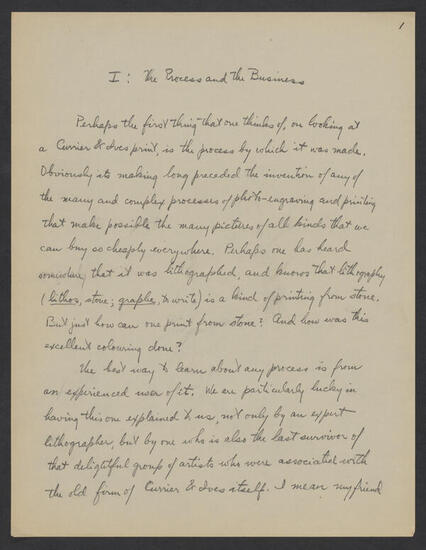 1
I: The Process and the Business
Perhaps the first thing that one thinks of, on looking at
a Currier & Ives print, is the process by which it was made.
Obviously its making long preceded the invention of any of
the many and complex processes of photo-engraving and printing
that make possible the many pictures of all kinds that we
can buy so cheaply everywhere. Perhaps one has heard
somewhere that it was lithographed, and knows that lithography
(lithos, stone; graphe, to write) is a kind of printing from stone.
But just how can one print from stone? And how was this
excellent colouring done?
The best way to learn about any process is from
an experienced user of it. We are particularly lucky in
having this one explained to us, not only by an expert
lithographer, but by one who is also the last survivor of
that delightful group of artists who were associated with
the old firm of Currier & Ives itself. I mean my friend